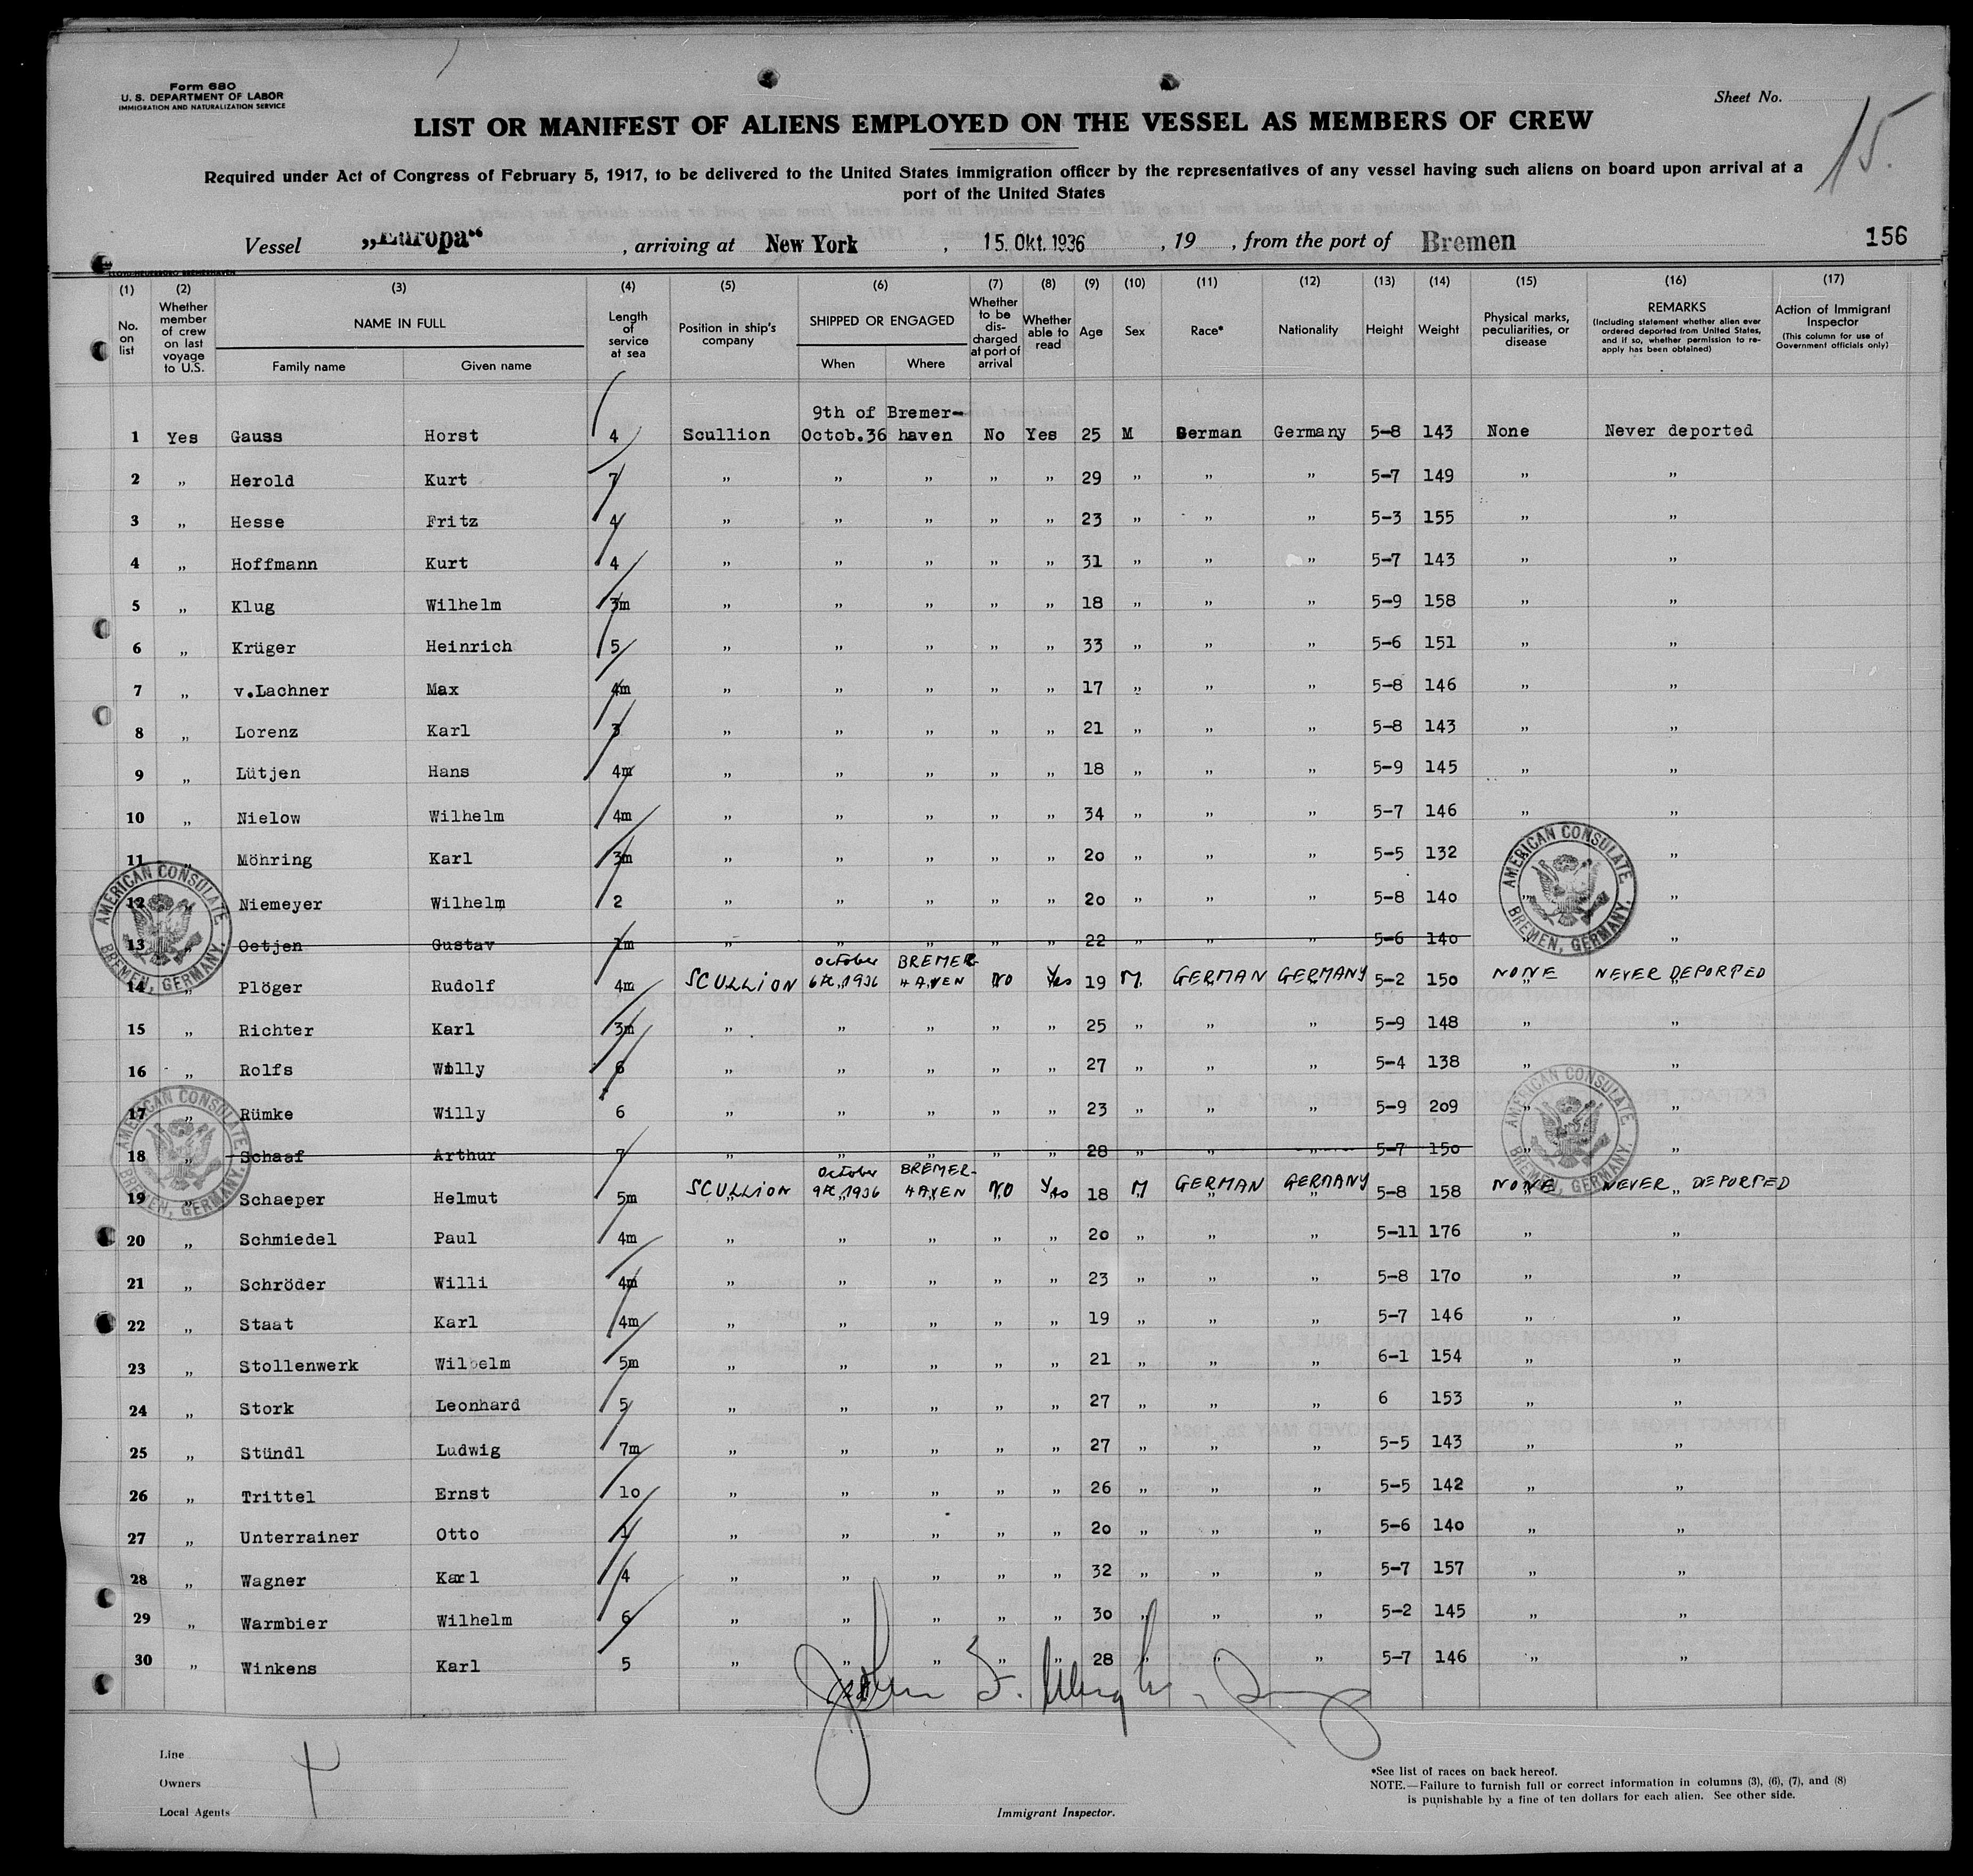 Form 680
U. S. DEPARTMENT OF LABOR
IMMIGRATION AND NATURALIZATION SERVICE
Sheet No.
15.
LIST OR MANIFEST OF ALIENS EMPLOYED ON THE VESSEL AS MEMBERS OF CREW
Required under Act of Congress of February 5, 1917, to be delivered to the United States immigration officer by the representatives of any vessel having such aliens on board upon arrival at a
port of the United States
Vessel „Europa“ , arriving at New York , 15. Okt. 1936 , 19 , from the port of Bremen 156
(1) (2) (3) (4) (5) (6) (7) (8) (9) (10) (11) (12) (13) (14) (15) (16) (17)
No. on list
Whether member of crew on last voyage to U.S.
NAME IN FULL
Family name Given name
Length of service at sea
Position in ship's company
SHIPPED OR ENGAGED
When Where
Whether to be discharged at port of arrival
Whether able to read
Age
Sex
Race*
Nationality
Height
Weight
Physical marks, peculiarities, or disease
REMARKS
(Including statement whether alien ever ordered deported from United States, and if so, whether permission to reapply has been obtained)
Action of Immigrant Inspector
(This column for use of Government officials only)
9th of Bremer-
1 Yes Gauss Horst 4 Scullion Octob.36 haven No Yes 25 M German Germany 5-8 143 None Never deported
2 „ Herold Kurt 7 „ „ „ „ „ 29 „ „ „ 5-7 149 „ „
3 „ Hesse Fritz 4 „ „ „ „ „ 23 „ „ „ 5-3 155 „ „
4 „ Hoffmann Kurt 4 „ „ „ „ „ 31 „ „ „ 5-7 143 „ „
5 „ Klug Wilhelm 3m „ „ „ „ „ 18 „ „ „ 5-9 158 „ „
6 „ Krüger Heinrich 5 „ „ „ „ „ 33 „ „ „ 5-6 151 „ „
7 „ v.Lachner Max 4m „ „ „ „ „ 17 „ „ „ 5-8 146 „ „
8 „ Lorenz Karl 3 „ „ „ „ „ 21 „ „ „ 5-8 143 „ „
9 „ Lütjen Hans 4m „ „ „ „ „ 18 „ „ „ 5-9 145 „ „
10 „ Nielow Wilhelm 4m „ „ „ „ „ 34 „ „ „ 5-7 146 „ „
11 „ Möhring Karl 3m „ „ „ „ „ 20 „ „ „ 5-5 132 „
12 „ Niemeyer Wilhelm 2 „ „ „ „ „ 20 „ „ „ 5-8 140 „ „
13 Oetjen Gustav 1m „ „ „ „ „ 22 „ „ „ 5-6 140 „ „
October BREMER-
14 „ Plöger Rudolf 4m SCULLION 6th, 1936 HAVEN NO Yes 19 M. GERMAN GERMANY 5-2 150 NONE NEVER DEPORTED
15 „ Richter Karl 3m „ „ „ „ „ 25 „ „ „ 5-9 148 „ „
16 „ Rolfs Willy 6 „ „ „ „ „ 27 „ „ „ 5-4 138 „ „
17 „ Rümke Willy 6 „ „ „ „ „ 23 „ „ „ 5-9 209 „ „
18 „ Schaaf Arthur 7 „ „ „ „ „ 28 „ „ „ 5-7 150 „ „
October BREMER-
19 „ Schaeper Helmut 5m SCULLION 9th, 1936 HAVEN NO Yes 18 M GERMAN GERMANY 5-8 158 NONE NEVER DEPORTED
20 „ Schmiedel Paul 4m „ „ „ „ „ 20 „ „ „ 5-11 176 „ „
21 „ Schröder Willi 4m „ „ „ „ „ 23 „ „ „ 5-8 170 „ „
22 „ Staat Karl 4m „ „ „ „ „ 19 „ „ „ 5-7 146 „ „
23 „ Stollenwerk Wilhelm 5m „ „ „ „ „ 21 „ „ „ 6-1 154 „ „
24 „ Stork Leonhard 5 „ „ „ „ „ 27 „ „ „ 6 153 „ „
25 „ Stündl Ludwig 7m „ „ „ „ „ 27 „ „ „ 5-5 143 „ „
26 „ Trittel Ernst 10 „ „ „ „ „ 26 „ „ „ 5-5 142 „ „
27 „ Unterrainer Otto 1 „ „ „ „ „ 20 „ „ „ 5-6 140 „ „
28 „ Wagner Karl 4 „ „ „ „ „ 32 „ „ „ 5-7 157 „ „
29 „ Warmbier Wilhelm 6 „ „ „ „ „ 30 „ „ „ 5-2 145 „ „
30 „ Winkens Karl 5 „ „ „ „ „ 28 „ „ „ 5-7 146 „ „
AMERICAN CONSULATE BREMEN, GERMANY.
AMERICAN CONSULATE BREMEN, GERMANY.
AMERICAN CONSULATE BREMEN, GERMANY.
AMERICAN CONSULATE BREMEN, GERMANY.
John F.
Line
Owners
Local Agents
Immigrant Inspector.
*See list of races on back hereof.
NOTE.—Failure to furnish full or correct information in columns (3), (6), (7), and (8)
is punishable by a fine of ten dollars for each alien. See other side.